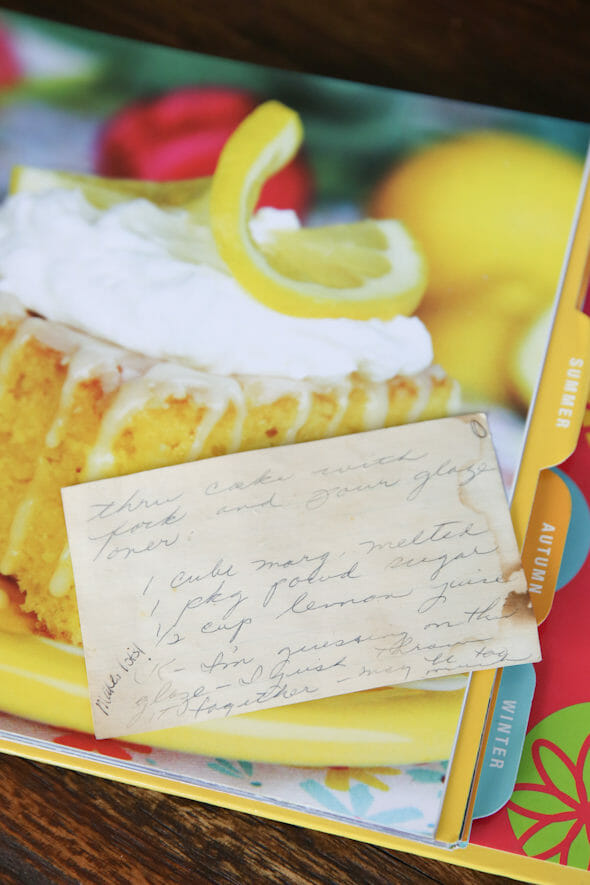 thru cake with
fork and pour glaze
over.
1 cube marg. melted
1 pkg powd sugar
1/2 cup lemon juice
I'm guessing on the
glaze - I just throw
it together - may be too
SUMMER
AUTUMN
WINTER